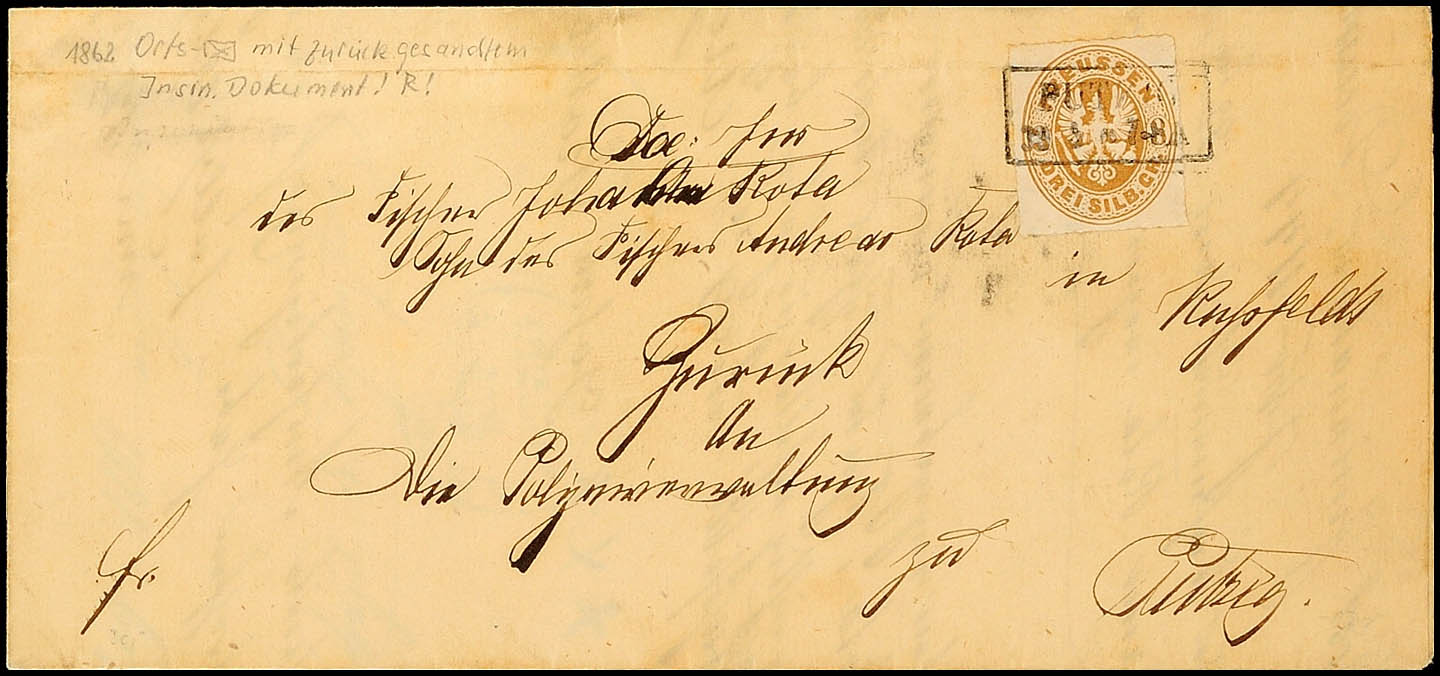 1862 Orts- mit zurückgesandtem
Insin. Dokument! R!
PREUSSEN
DREI SILB.GR.
PUT
7-8A
Doc: Ins
des Fischer Johann Kota
Sohn des Fischers Andreas Kota
in
Zurück
An
Die Polizeiverwaltung
fr.
zu
Putzig.